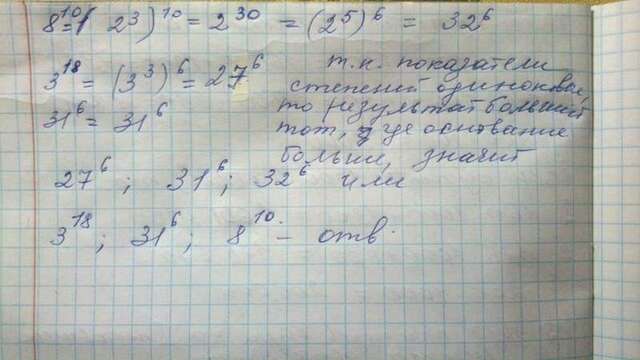 8¹⁰ = (2³)¹⁰ = 2³⁰ = (2⁵)⁶ = 32⁶
3¹⁸ = (3³)⁶ = 27⁶
31⁶ = 31⁶
т.к. показатели
степений одинокове,
то результат больший
тот, где основание
больш, значит
27⁶ ; 31⁶ ; 32⁶ или
3¹⁸ ; 31⁶ ; 8¹⁰ – отв.